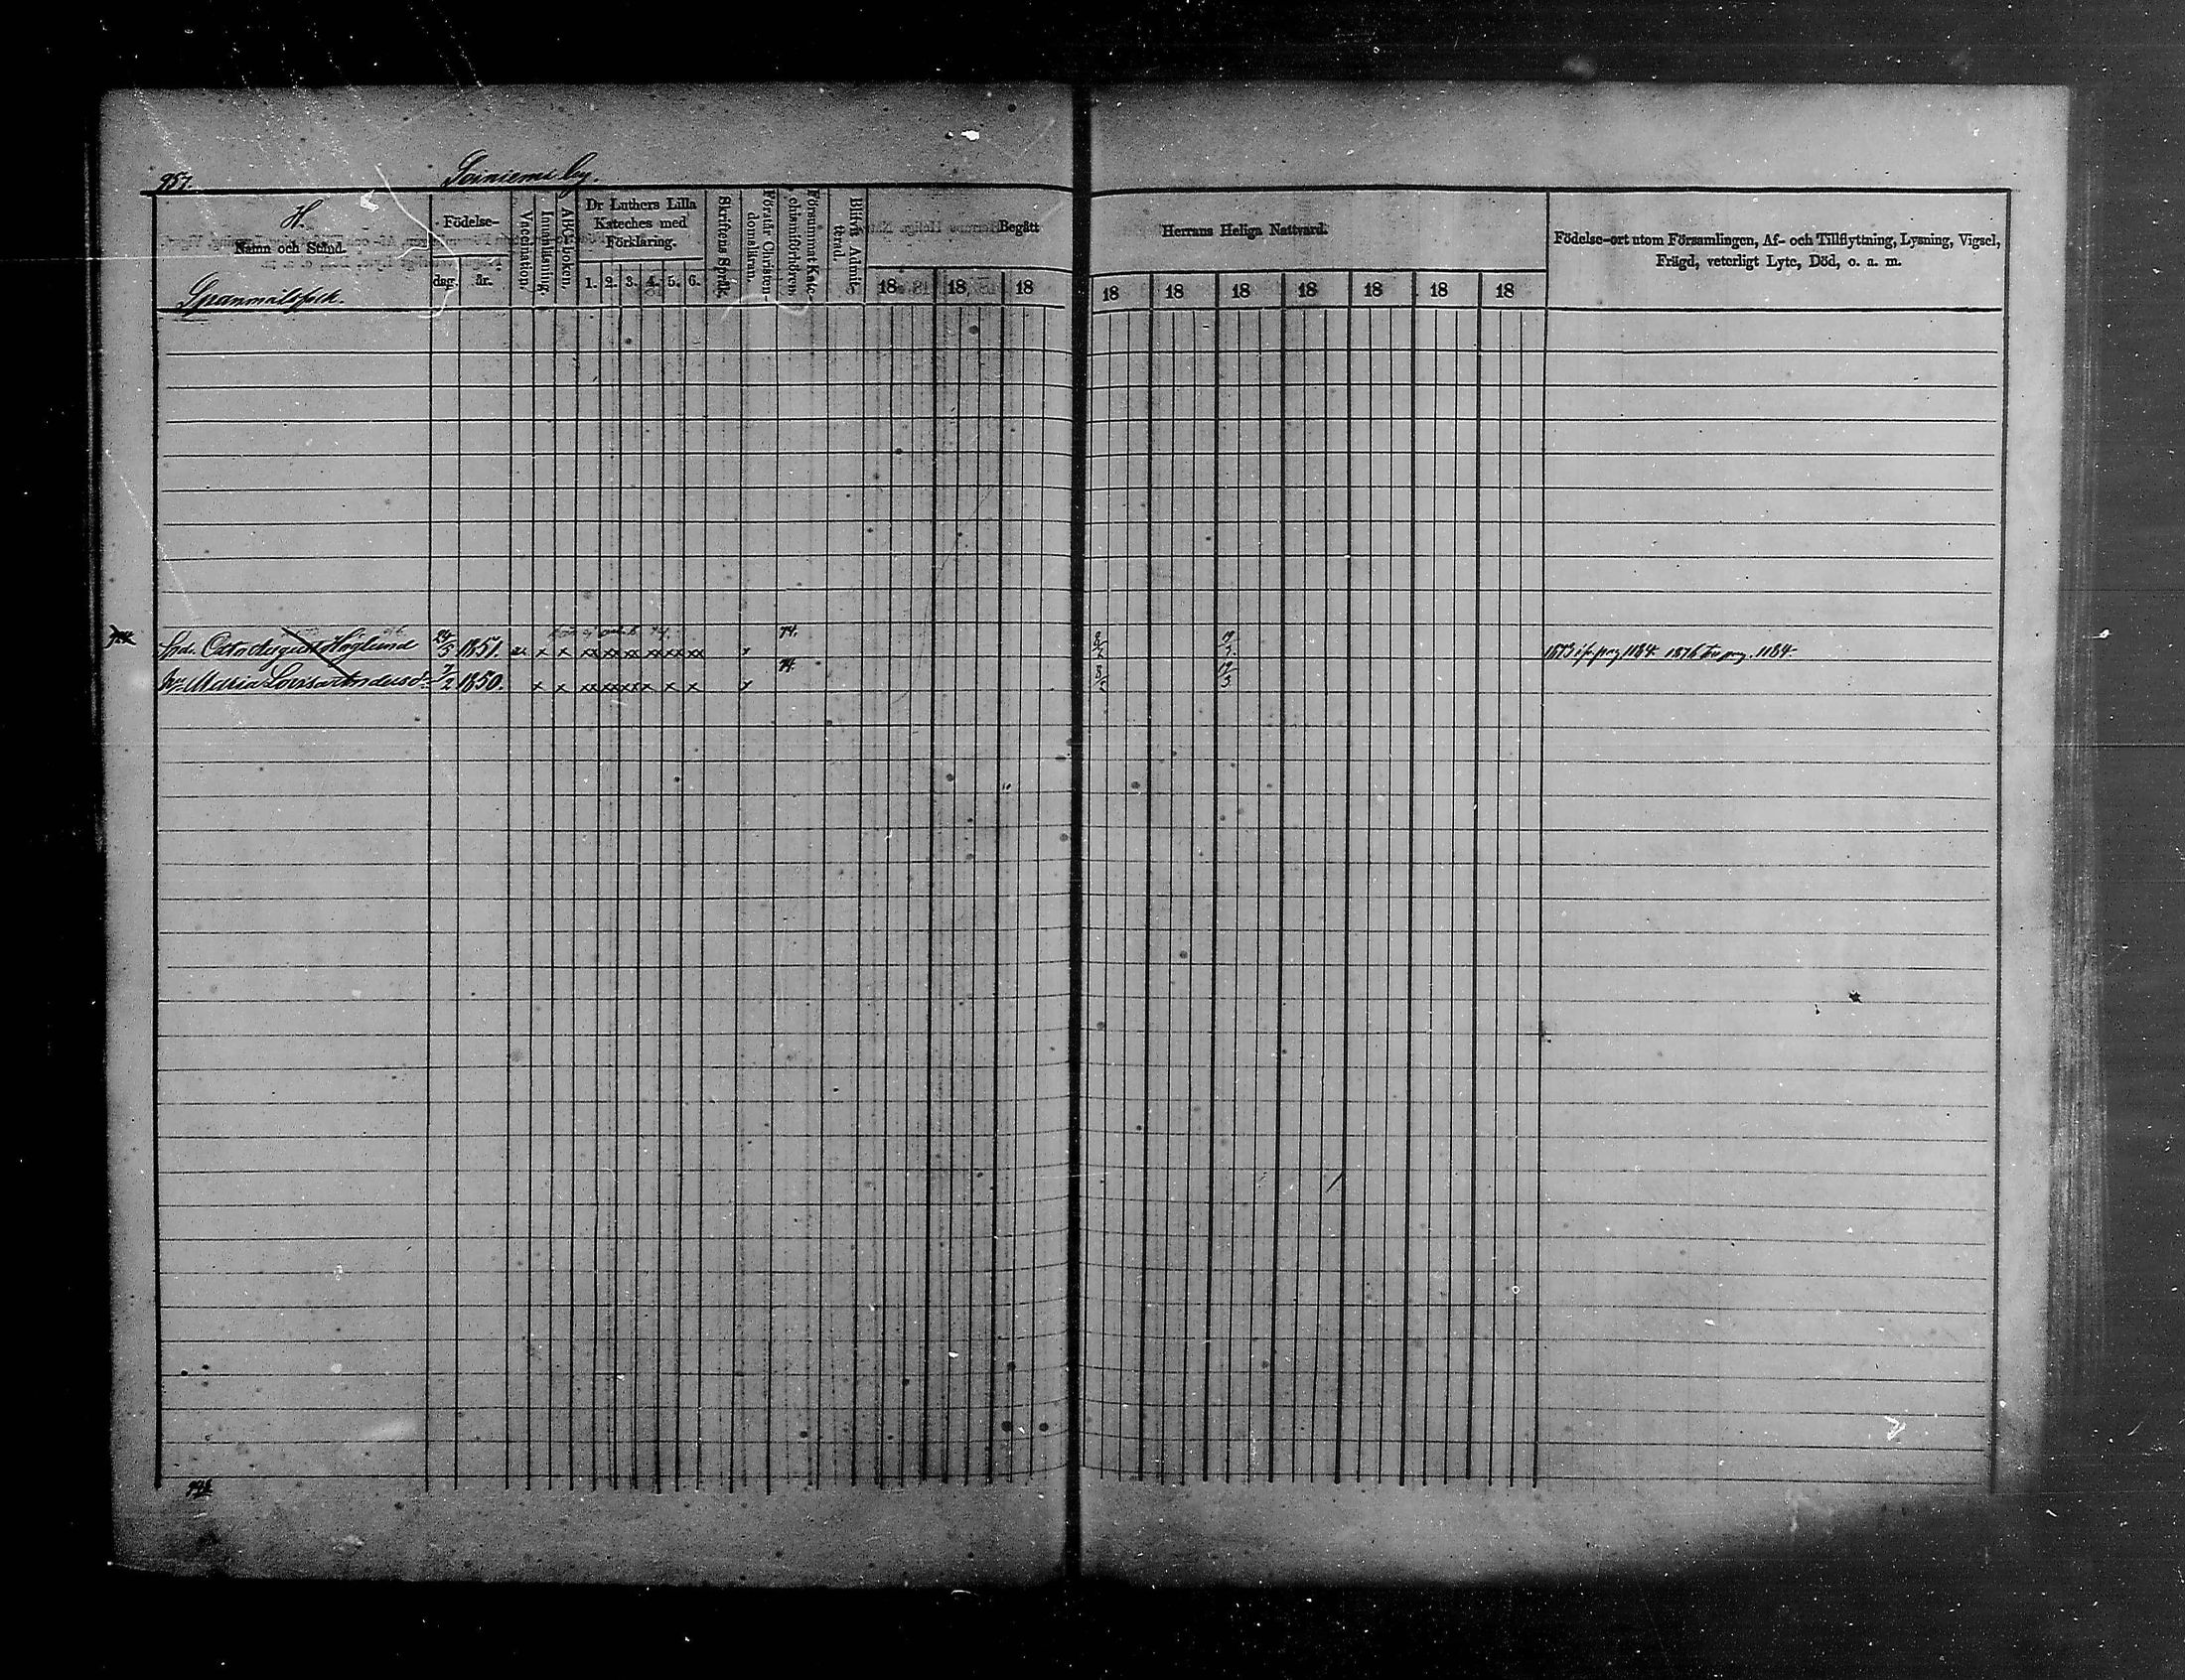 957. Soiniemi by.
H.
Namn och Stånd.
Spanmålsfolk.
Födelse-
dag. år.
Vaccination.
Innanläsning.
ABC-boken.
Dr Luthers Lilla
Kateches med
Förklaring.
1. 2. 3. 4. 5. 6.
Skriftens Språk.
Förstår Christen-
domsläran.
Försummat Kate-
chismiförhören.
Blifvit Admit-
terad.
Begått
18 18 18
Herrans Heliga Nattvard.
18 18 18 18 18 18 18
Födelse-ort utom Församlingen, Af- och Tillflyttning, Lysning, Vigsel,
Frägd, veterligt Lyte, Död, o. a. m.
Otto August Höglund 24/5 1851. x x xx xx xx xx xx xx x 74. 8/2 1873 ifr. pag 1184. 1876 pag. 1184.
Hu Maria 7/2 1850. x x xx xx xx x x x x 74. 8/2 19/3